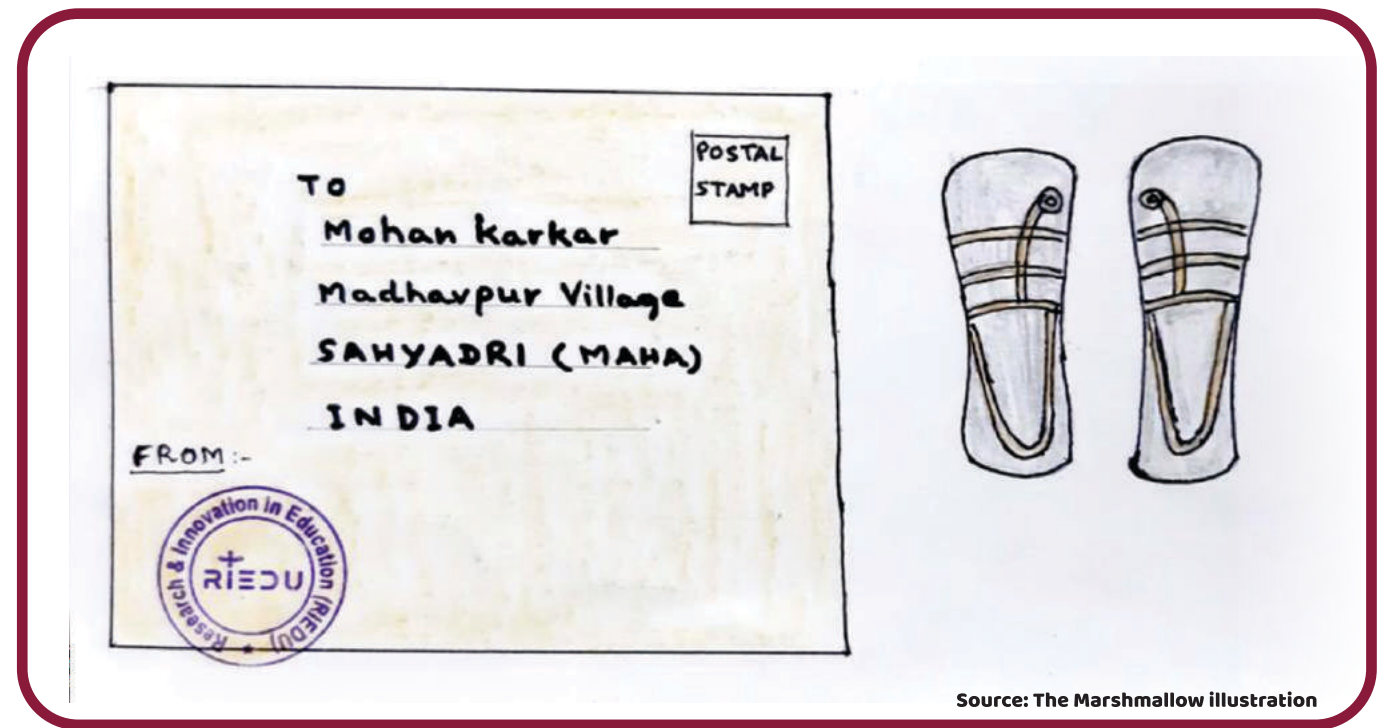 POSTAL
STAMP
TO
Mohan Karkar
Madhavpur Village
SAHYADRI (MAHA)
INDIA
FROM:-
Research & Innovation in Education (RIEDU)
RIEDU
Source: The Marshmallow illustration